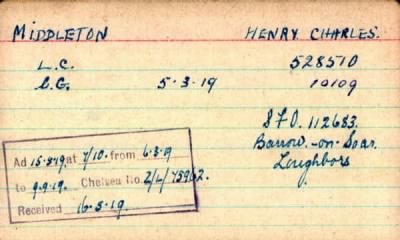 MIDDLETON HENRY CHARLES.
L.C. 528510
S.G. 5.3.19 10109
S.F.O. 112683.
Barrow-on-Soar.
Loughboro
Ad 15.8.49 at 7/10. from 6.3.19
to 9.9.19. Chelsea No. 2/L/
Received 16.5.19.